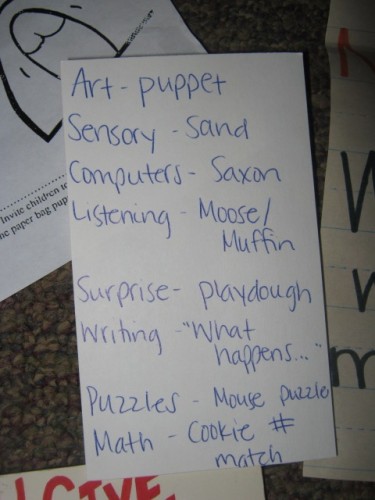 Art - puppet
Sensory - Sand
Computers - Saxon
Listening - Moose/
Muffin
Surprise - playdough
Writing - "What
happens..."
Puzzles - Mouse puzzle
Math - Cookie #
match
Invite children to